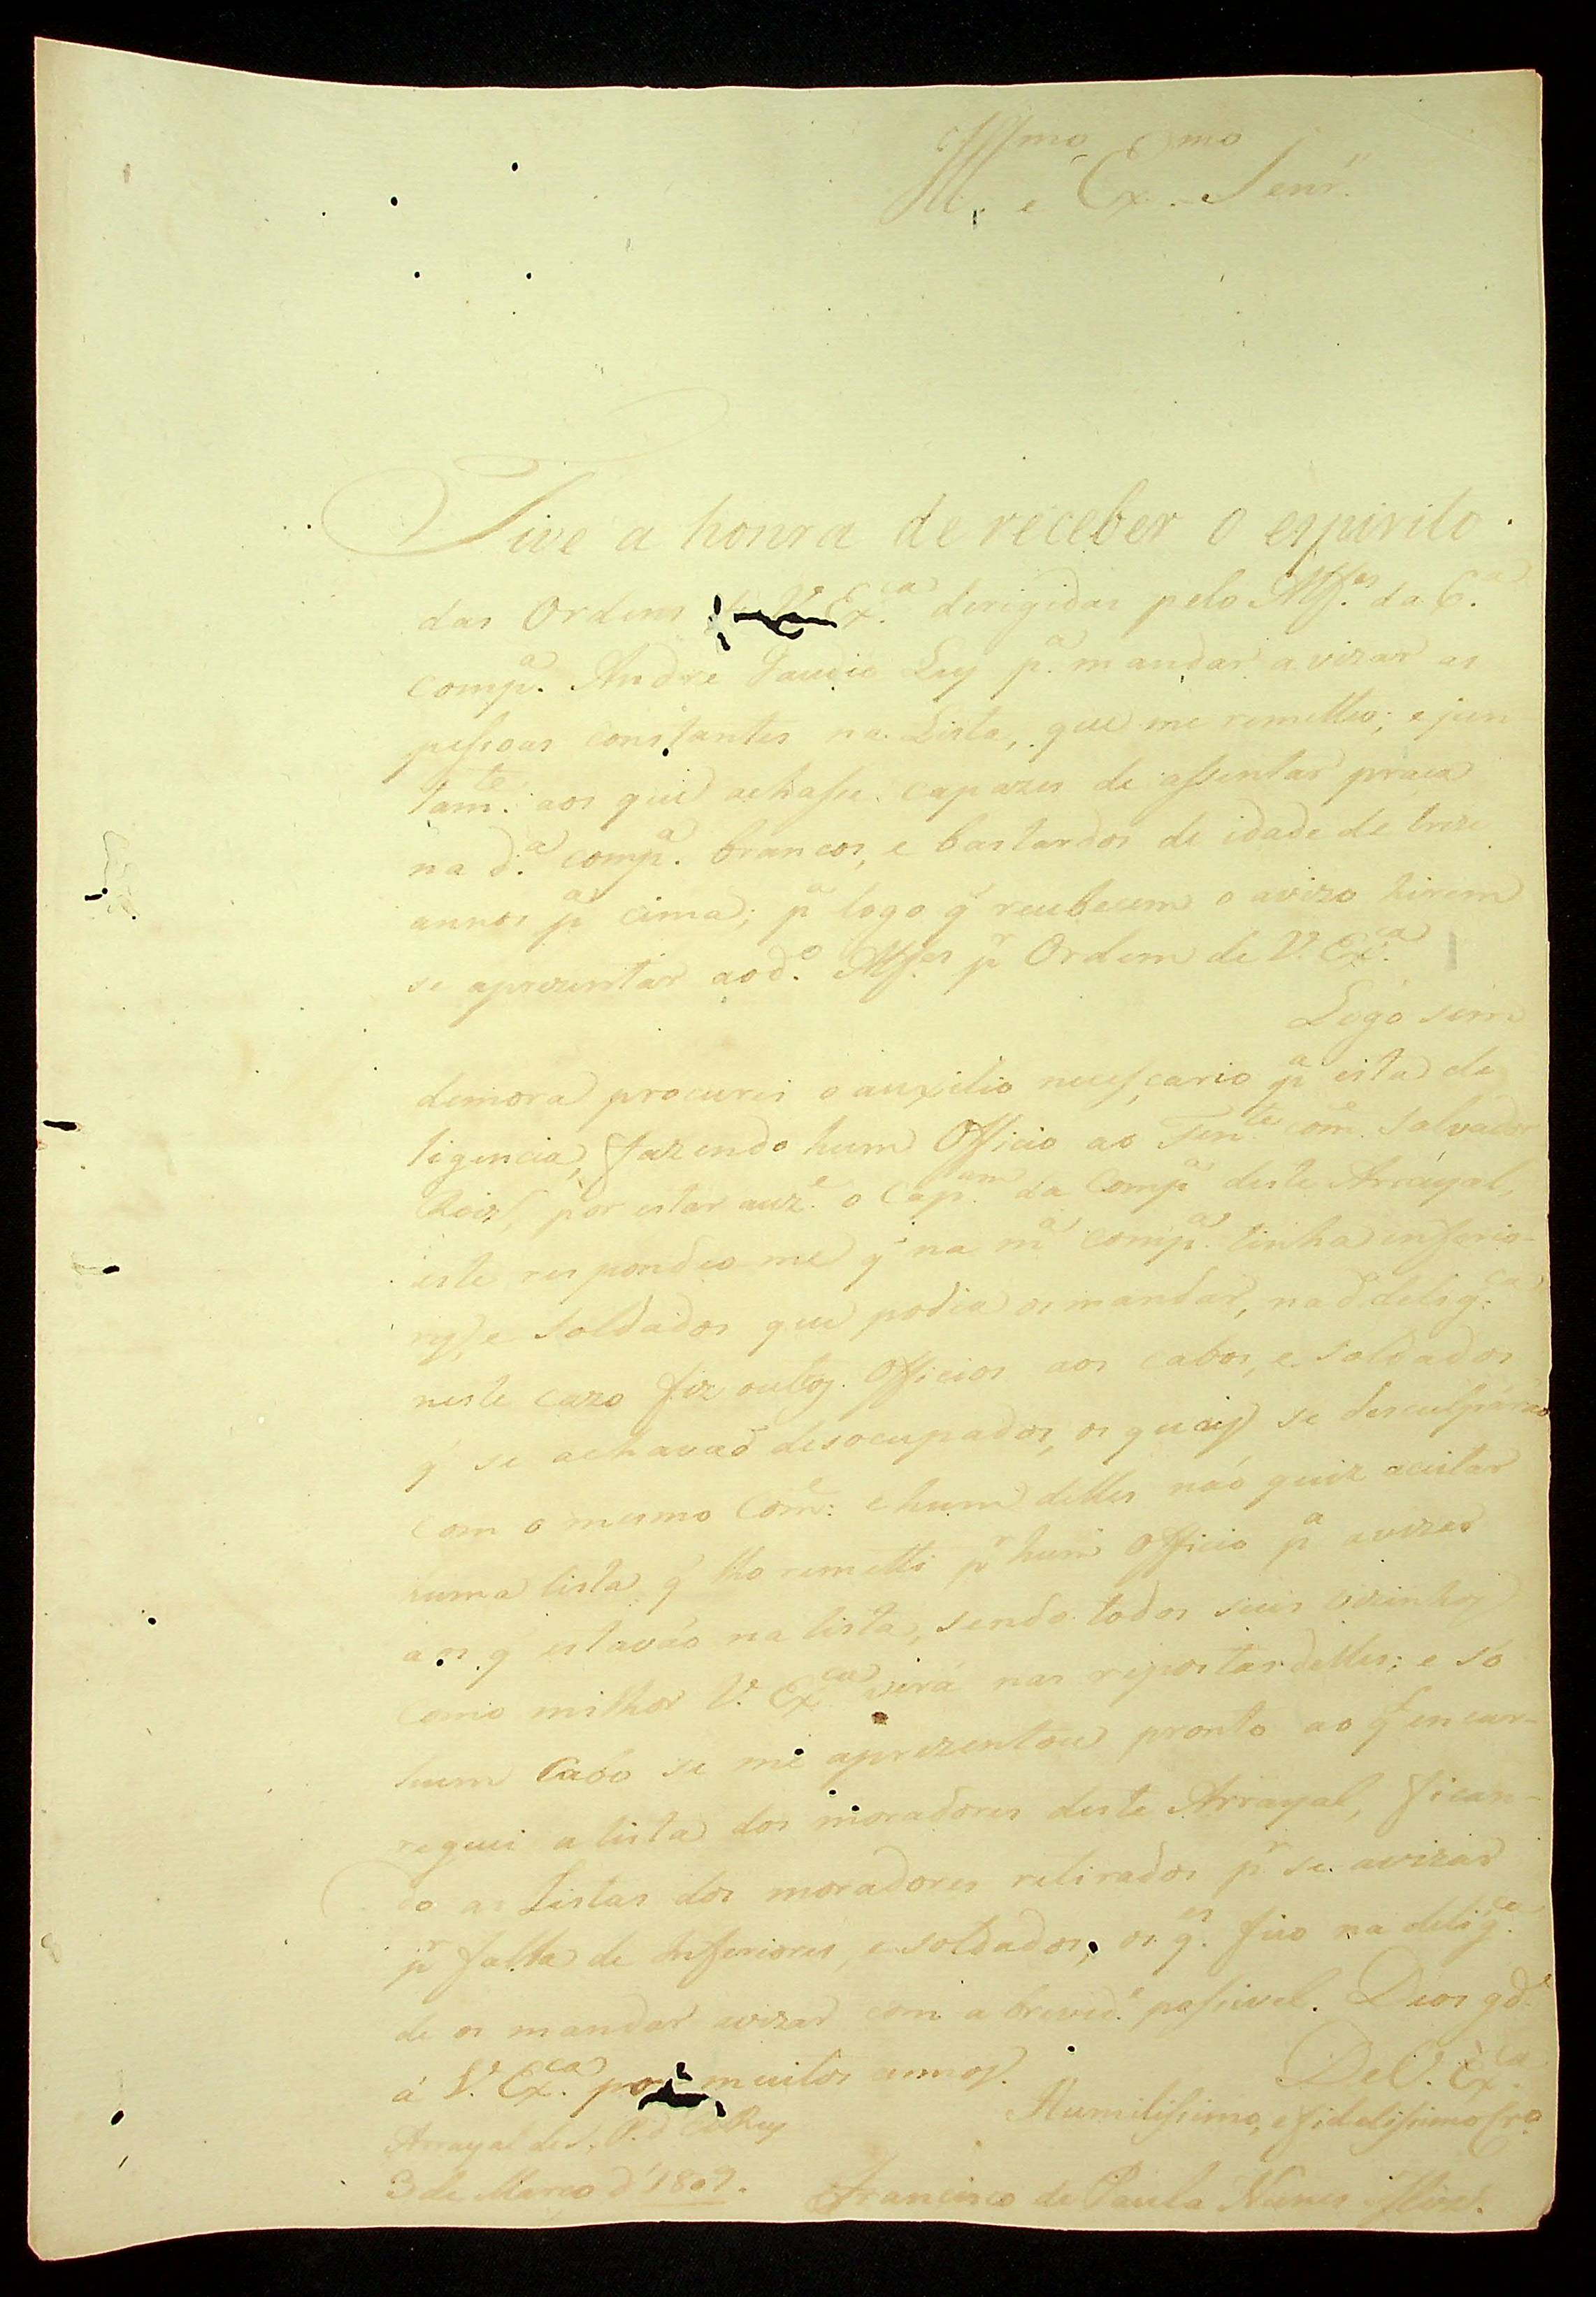 Ill.mo e Ex.mo Senr.
Tive a honra de receber o espirito
das Ordens de V. Ex.ca derigidas pelo Alf.es da 6.a
comp.a Andre Gaudie Ley p.a mandar avizar as
pessoas constantes na Lista, que me remetteo; e jun
tam.te aos que achasse capazes de assentar praça
na d.a comp.a brancos, e bastardos de idade de treze
annos p.a cima; p.a logo q' recebecem o avizo hirem
se aprezentar ao d.o Alf.es p.r Ordem de V. Ex.ca
Logo sem
demora procurei o auxilio necesçario p.a esta de
ligencia, fazendo hum Officio ao Ten.te com.e Salvador
Roiz, por estar auz.e o Cap.am da Comp.a deste Arrayal,
este respondeo-me q' na m.a comp.a tinha inferio-
res, e soldados que podia os mandar, na d.a delig.ca
neste cazo fiz outros Officios aos cabos, e soldados
q' se achavaõ desocupados, os quais se desculpáraõ
com o mesmo Com.e: e hum delles não quiz aceitar
huma lista q' lho remetti p.r hum Officio p.a avizar
aos q' estavão na lista, sendo todos seus vizinhos
como milhor V. Ex.ca virá nas repostas delles; e só
hum Cabo se me aprezentou pronto ao q.l encar-
reguei a lista dos moradores deste Arrayal, fican-
do as Listas dos moradores retirados p.r se avizar
p.r falta de Inferiores, e soldados, os q.es fico na delig.ca
de os mandar avizar com a brevid.e possivel. Deos g.de
á V. Ex.ca por muitos annos.
De V. Ex.ca
Arrayal de S. P. d' El Rey
Humilissimo, e fidelissimo Cr.o
3 de Março d' 1809.
Francisco de Paula Nunes